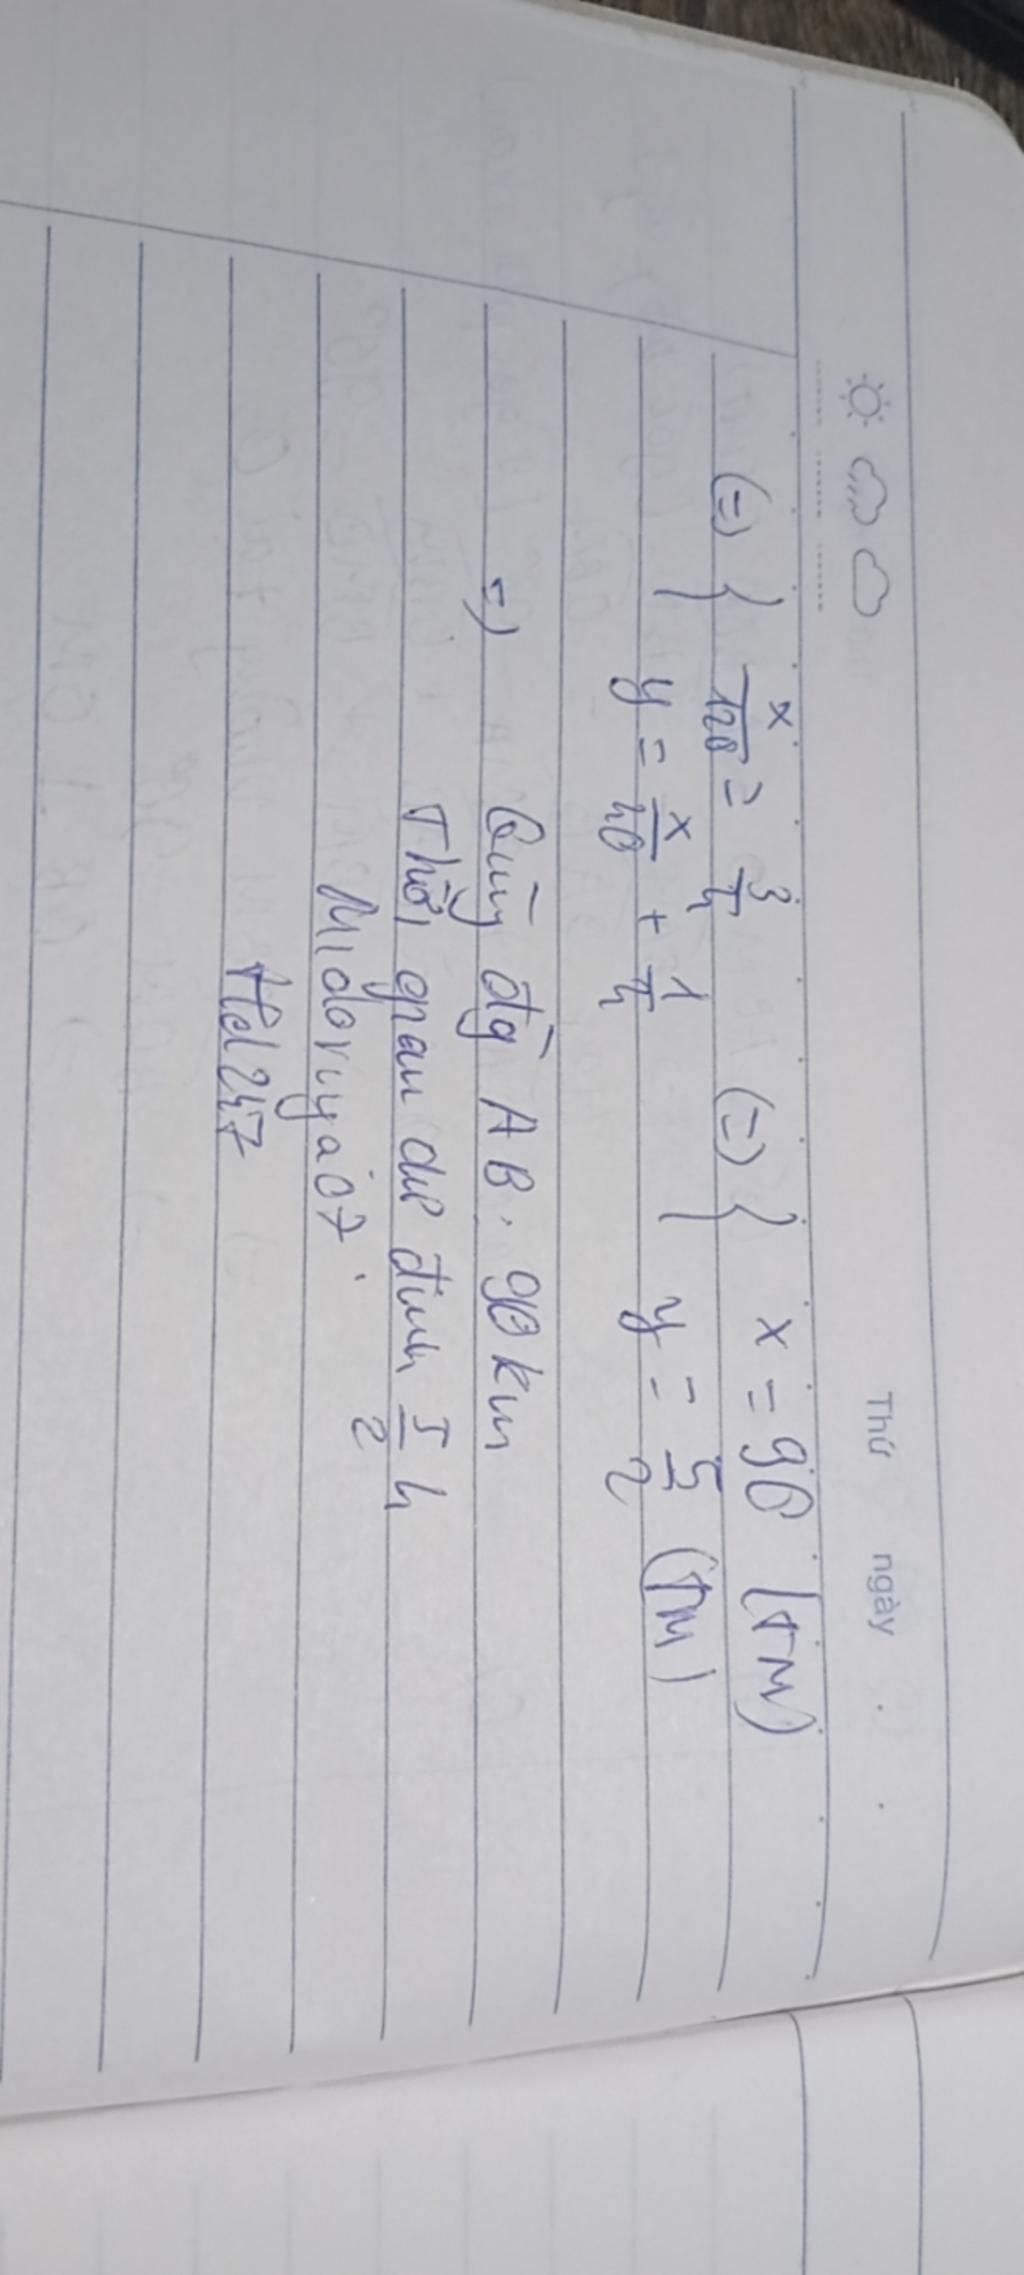 Thứ ngày
(=) { x/120 = 3/4 (=) { x = 90 (TM)
y = x/40 + 1/4 y = 5/2 (TM)
=) Quãng đg AB: 90 km
Thời gian dự định 5/2 h
Midoriya07
Hd247